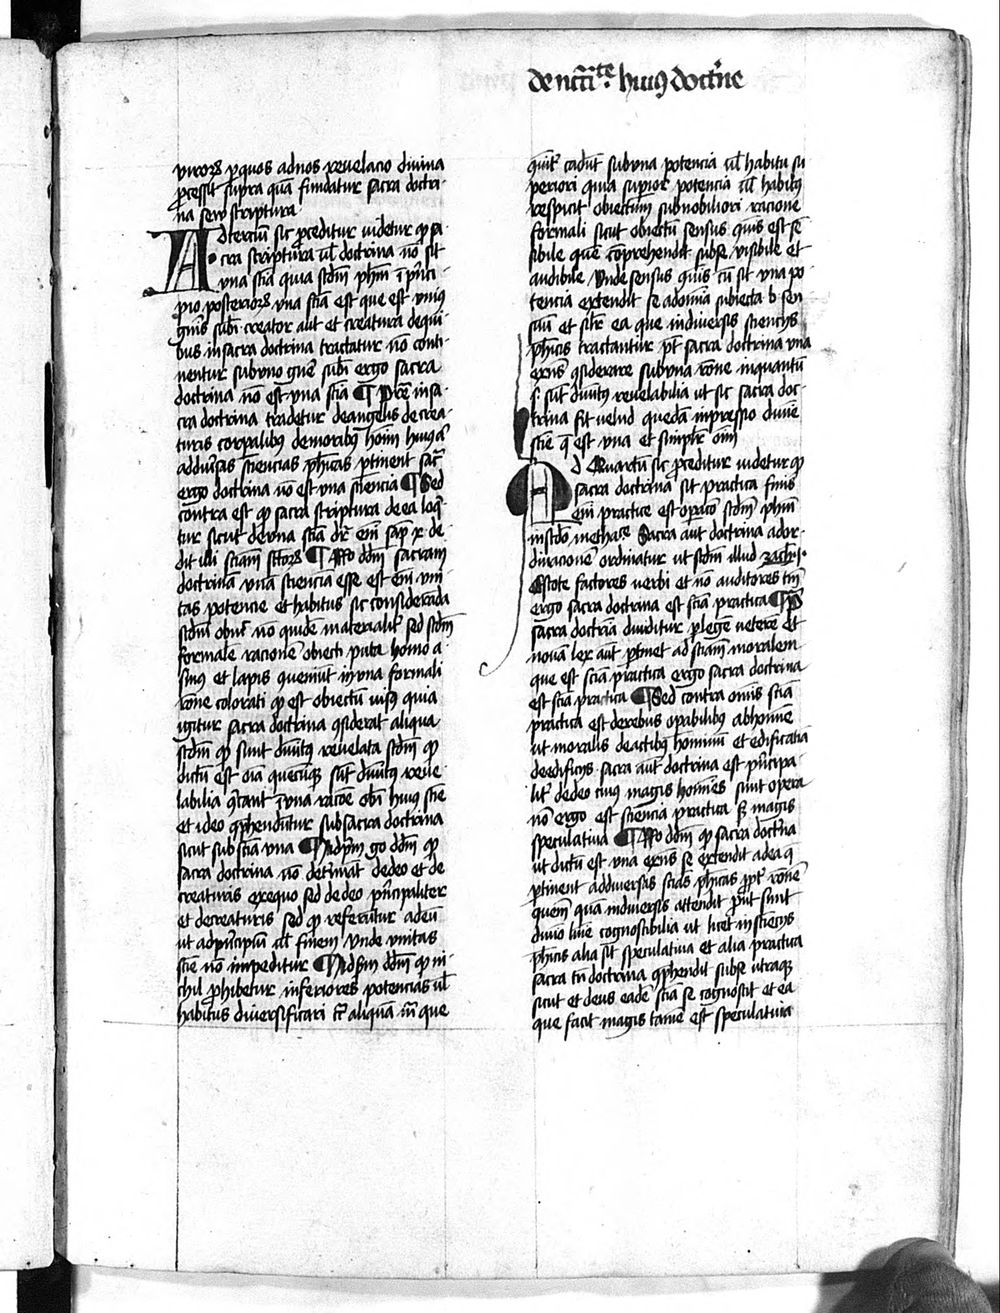 de nc̄ci.te huiꝰ doct'ne
viroꝝ ꝑ quos ad nos revelacio divina
ꝓcessit supra quā fundatur sacra doctri-
na seu scriptura
Ad terciū sic ꝓceditur videtur ꝙ sa-
cra scriptura vl̄ doctrina nō sit
vna sciā quia scd̄m ph̄m ī p'nci-
pio posterioꝝ vna sciā est que est vniꝰ
gn̄is subī creator aut et creatura de qui-
bus in sacra doctrina tractatur nō conti-
nentur sub vno gn̄e subī ergo sacra
doctrina nō est vna sciā ¶ Pret̄ in sa-
cra doctrina tradetur de angelis de crea-
turis corꝑalibꝫ de moribꝫ hoīm huiꝰ aū
ad diūsas sciencias ph̄icas ꝑtinent sac̄
ergo doctrina nō est vna sciencia ¶ Sed
contra est ꝙ sacra scriptura de ea loq̄-
tur sicut de vna sciā dr̄ em̄ sap̄ x de-
dit illi sciam sc̄toꝝ ¶ Rn̄o dd̄m sacram
doctrinā vnā sciencia esse est em̄ vni-
tas potencie et habitus sic considerāda
scd̄m obiꝫ nō quidē materialit' sed scd̄m
formale racionē obiecti puta homo a-
sinꝰ et lapis ꝯueniūt in vna formali
rōne colorati ꝙ est obiectū visꝰ quia
igitur sacra doctrina ꝯsiderat aliqua
scd̄m ꝙ sunt diuītꝰ reuelata scd̄m ꝙ
dictū est oīa quecūqꝫ sūt diuītꝰ reue-
labilia ꝯicant ī vna racōe obī huiꝰ scīe
et ideo ꝯprehendūtur sub sacra doctrina
sicut sub sciā vna ¶ Ad pm̄ go dd̄m ꝙ
sacra doctrina nō det'minat de deo et de
creaturis ex equo sed de deo p'ncipaliter
et de creaturis sed ꝙ referūtur ad eū
ut ad p'ncipiū vl̄ finem Vnde vnitas
scīe nō impeditur ¶ Ad scd̄m dd̄m ꝙ ni-
chil ꝓhibetur inferiores potencias vl̄
habitus diuersificari c̄ aliquā m̄m que
cadūt sub vna potencia vl̄ habitu su-
periori quia suꝑior potencia vl̄ habitꝰ
respicit obiectum sub nobiliori racione
formali sicut obiectū sensus ꝯuis est sē-
sibile quod cōprehendit sub se visibile et
audibile Vnde sensus ꝯuis cū sit vna po-
tencia extendit se ad omnia subiecta v sen-
suū et sil'r ea que in diuersis scienciis
ph̄icis tractantur pt̄ sacra doctrina vna
exn̄s ꝯsiderare sub vna rōne inquantū
s. sūt diuītꝰ reuelabilia ut sic sacra doc-
trina sit velud quedā inpressio diuīe
scīe q̄ est vna et simplr̄ oīm
Ad Quartū sic ꝓceditur videtur ꝙ
sacra doctrina sit practica finis
em̄ practice est oꝑaco scd̄m ph̄m
in scd̄o methaīe Sacra aūt doctrina ad oꝑ-
ordinatur ut scd̄m illud
Estote factores verbi et nō auditores tm̄
ergo sacra doctrina est sciā practica ¶ P
sacra doctrīa diuiditur ꝑ legē veterē et
nouā lex aūt ꝑtinet ad sciam moralem
que est sciā practica ergo sacra doctrina
est sciā practica ¶ Sed contra omīs sciā
practica est de rebus oꝑabilibꝰ ab homīe
ut moralis de actibꝰ hominū et edificatīa
de edificiis sacra aūt doctrina est p'ncipa-
lit' de deo cuiꝰ magis homīes sunt opera
nō ergo est sciencia practica sꝫ magis
speculatiua ¶ Rn̄o dd̄m ꝙ sacra doct'na
ut dictū est vna exn̄s se extendit ad ea q̄
ꝑtinent ad diuersas sciās ph̄icas ꝓpt' rōnē
quem quā in diuersis attendit put sunt
diuīo lumīe cognoscibilia ut licet in scienciis
ph̄icis alia sit speculatiua et alia practica
sacra tn̄ doctrina ꝯprehendit sub se utraqꝫ
sicut et deus eadē sciā se cognoscit et ea
que facit magis tamē est speculatiua